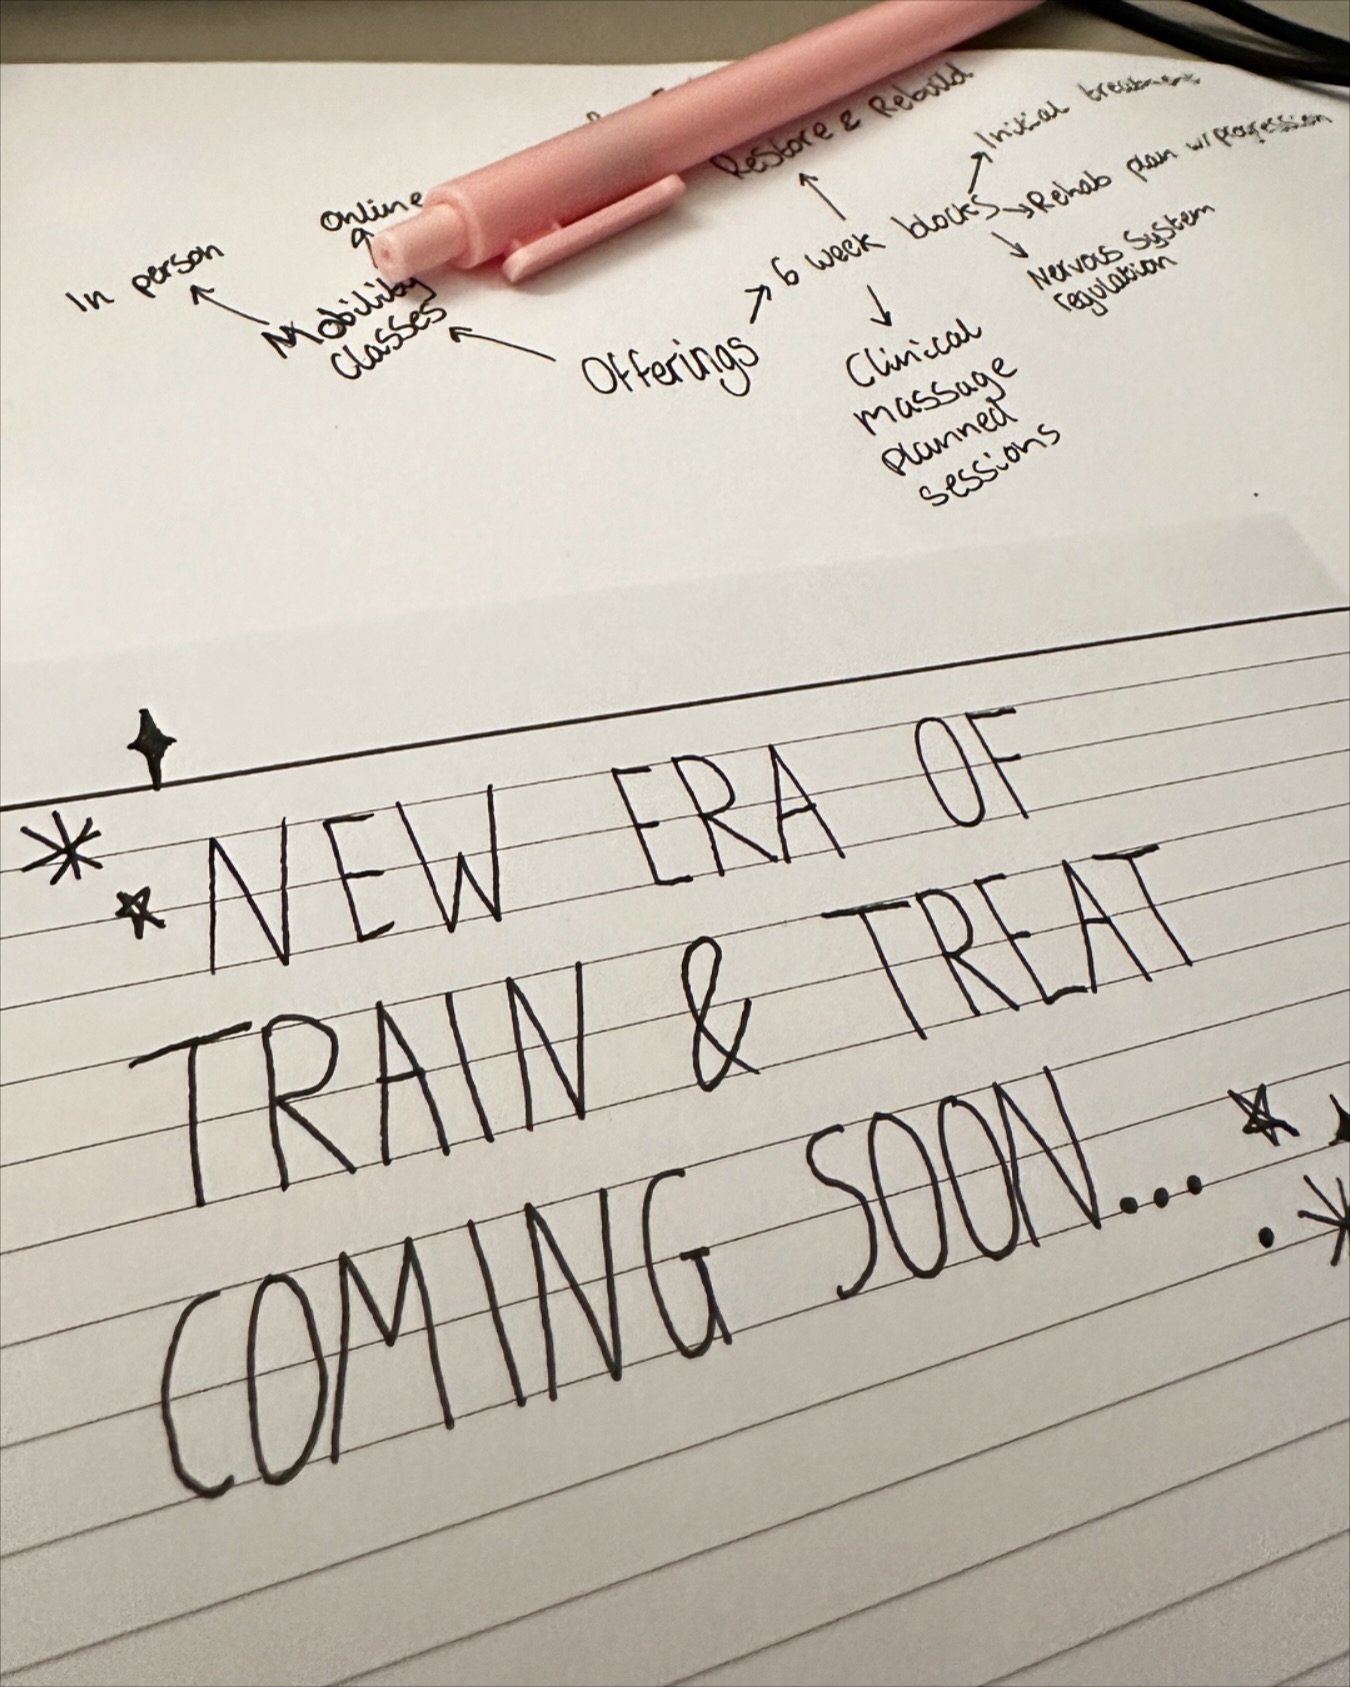 Restore & Rebuild
Initial treatment
Online
6 week blocks
Rehab plan w/ progression
In person
Nervous System
regulation
Mobility
classes
Offerings
Clinical
massage
planned
sessions
NEW ERA OF
TRAIN & TREAT
COMING SOON...